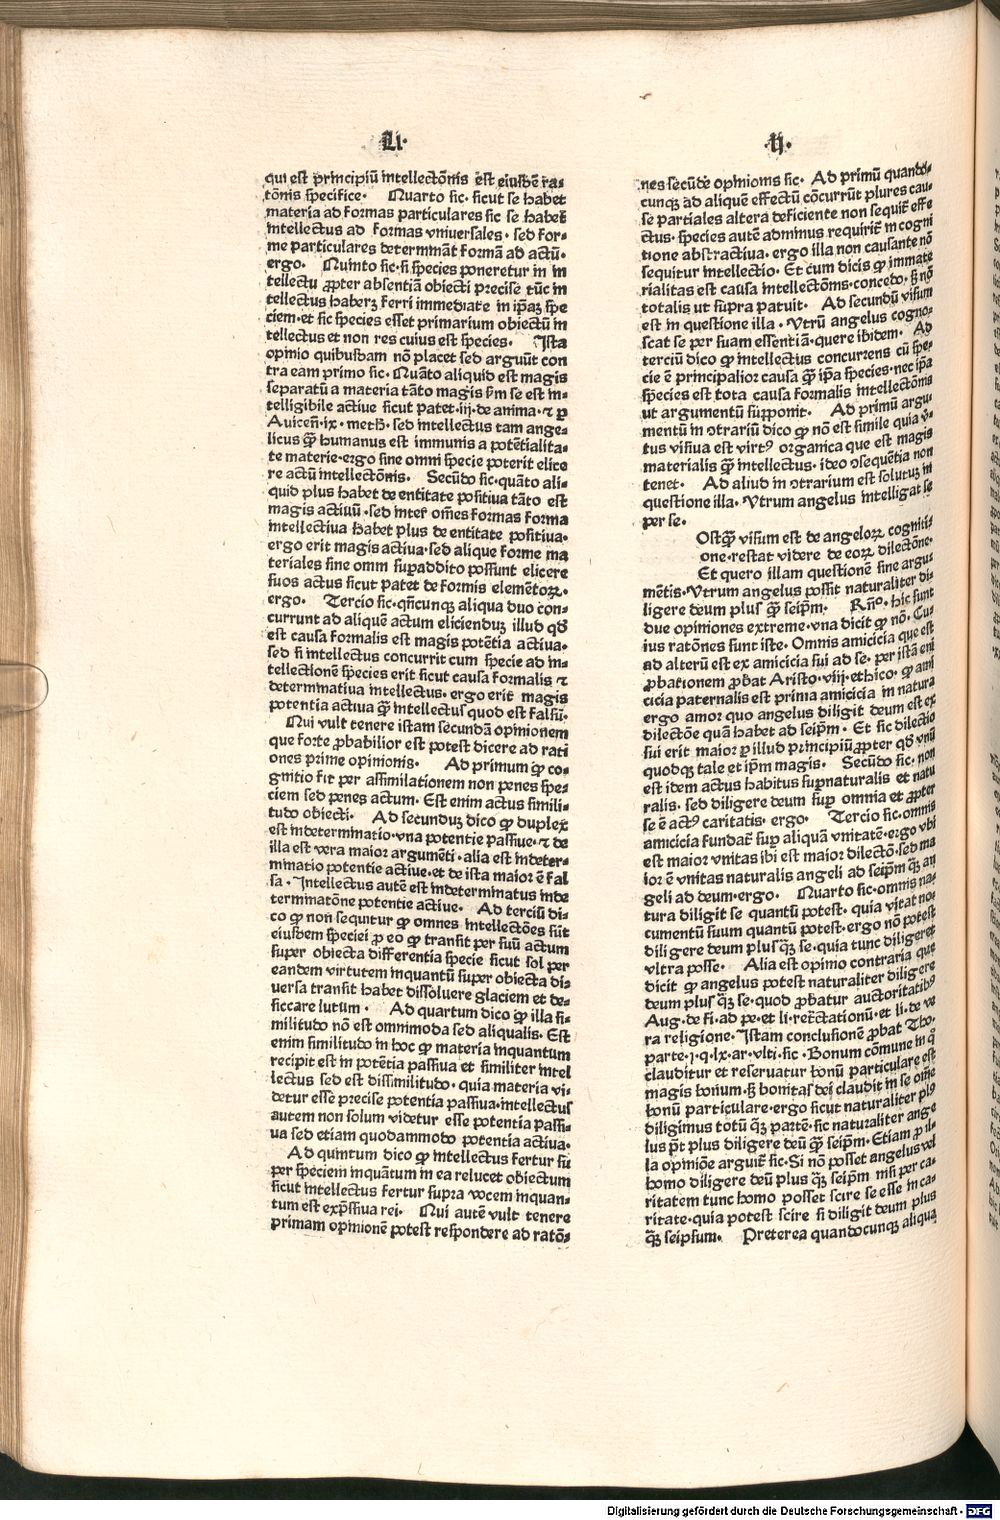 Li·
qui est principiū intellectōnis est eiusdē ra⸗
tōnis specifice· Quarto sic· sicut se habet
materia ad formas particulares sic se habet
intellectus ad formas vniuersales· sed for⸗
me particulares determināt formā ad actū·
ergo· Quinto sic·si species poneretur in in
tellectu ꝓpter absentiā obiecti precise tūc in
tellectus haberꝫ ferri immediate in ip̄aꝫ spe
ciem·et sic species esset primarium obiectū in
tellectus et non res cuius est species· Ista
opinio quibusdam nō placet sed arguūt con
tra eam primo sic· Quāto aliquid est magis
separatū a materia tāto magis vm̄ se est in⸗
telligibile actiue sicut patet·iij·de anima·⁊ ꝑ
Auicen̄·ix·meth̄· sed intellectus tam ange⸗
licus qȝ̄ humanus est immunis a potētialita⸗
te materie·ergo sine omni specie poterit elice
re actū intellectōnis· Secūdo sic·quāto ali⸗
quid plus habet de entitate positiua tāto est
magis actiuū·sed inter om̄es formas forma
intellectiua habet plus de entitate positiua·
ergo erit magis actiua·sed alique forme ma
teriales sine omni supꝛaddito possunt elicere
suos actus sicut patet de formis elemētoꝝ·
ergo· Tercio sic·qn̄cunqꝫ aliqua duo con⸗
currunt ad aliquē actum eliciendūꝫ illud qd̄
est causa formalis est magis potētia actiua·
sed si intellectus concurrit cum specie ad in⸗
tellectionē species erit sicut causa formalis ⁊
determinatiua intellectus· ergo erit magis
potentia actiua qȝ̄ intellectus quod est falsū·
Qui vult tenere istam secundā opinionem
que forte ꝓbabilior est potest dicere ad rati
ones prime opinionis· Ad primum ꝙ co⸗
gnitio fit per assimilationem non penes spe⸗
ciem sed penes actum· Est enim actus simili⸗
tudo obiecti· Ad secunduꝫ dico ꝙ duplex
est indeterminatio·vna potentie passiue·⁊ de
illa est vera maior argumēti·alia est indeter⸗
minatio potentie actiue·et de ista maior ē fal
sa·Intellectus autē est indeterminatus inde
terminatōne potentie actiue· Ad terciū di⸗
co ꝙ non sequitur ꝙ omnes intellectōes sint
eiusdem speciei ꝓ eo ꝙ transit per suū actum
super obiecta differentia specie sicut sol per
eandem virtutem inquantū super obiecta di⸗
uersa transit habet dissoluere glaciem et de⸗
siccare lutum· Ad quartum dico ꝙ illa si⸗
militudo nō est omnimoda sed aliqualis· Est
enim similitudo in hoc ꝙ materia inquantum
recipit est in potētia passiua et similiter intel
lectus sed est dissimilitudo·quia materia vi⸗
detur esse precise potentia passiua·intellectus
autem non solum videtur esse potentia passi⸗
ua sed etiam quodammodo potentia actiua·
Ad quintum dico ꝙ intellectus fertur su
per speciem inquātum in ea relucet obiectum
sicut intellectus fertur supra vocem inquan⸗
tum est exp̄ssiua rei· Qui autē vult tenere
primam opinionē potest respondere ad ratō⸗
·ij·
nes secūde opinionis sic· Ad primū quando⸗
cunqꝫ ad aliquē effectū cōcurrūt plures cau⸗
se partiales altera deficiente non sequit̄ effe
ctus· species autē adminus requirit̄ in cogni
tione abstractiua· ergo illa non causante nō
sequitur intellectio· Et cum dicis ꝙ immate
rialitas est causa intellectōnis·concedo·sꝫ nō
totalis ut supra patuit· Ad secundū visum
est in questione illa·Vtrū angelus cogno⸗
scat se per suam essentiā·quere ibidem· Ad
terciū dico ꝙ intellectus concurrens cū spe⸗
cie ē principalior causa qȝ̄ ip̄a species·nec ip̄a
species est tota causa formalis intellectōnis
ut argumentū supponit· Ad primū argu
mentū in ꝯtrariū dico ꝙ nō est simile quia v̓⸗
tus visiua est virtꝰ organica que est magis
materialis qȝ̄ intellectus· ideo ꝯsequētia non
tenet· Ad aliud in ꝯtrarium est solutuꝫ in
questione illa·Vtrum angelus intelligat se
per se·
Ostqȝ̄ visum est de angeloꝝ cogniti⸗
one·restat videre de eoꝝ dilectōne·
Et quero illam questionē sine argu
mētis·Vtrum angelus possit naturaliter di⸗
ligere deum plus qȝ̄ seip̄m· Rn̄°·hic sunt
due opiniones extreme·vna dicit ꝙ nō· Cu⸗
ius ratōnes sunt iste·Omnis amicicia que est
ad alterū est ex amicicia sui ad se·per istā eni
ꝓbationem ꝓbat Aristo·viij·ethico·ꝙ ami
cicia paternalis est prima amicicia in natura
ergo amor quo angelus diligit deum est ex
dilectōe quā habet ad seip̄m· Et sic dilectio
sui erit maior ꝑ illud principiū ꝓpter qd̄ vnū
quodqꝫ tale et ip̄m magis· Secūdo sic·non
est idem actus habitus sup̄naturalis et natu
ralis· sed diligere deum sup̄ omnia et ꝓpter
se ē actꝰ caritatis·ergo· Tercio sic·omnis
amicicia fundat̄ sup̄ aliquā vnitatē·ergo vbi
est maior vnitas ibi est maior dilectō·sed ma
ior ē vnitas naturalis angeli ad seip̄m qȝ̄ an
geli ad deum·ergo· Quarto sic·omnis na⸗
tura diligit se quantū potest· quia vitat no⸗
cumentū suum quantū potest·ergo nō potest
diligere deum plus qȝ̄ se·quia tunc diligeret
vltra posse· Alia est opinio contraria que
dicit ꝙ angelus potest naturaliter diligere
deum plus qȝ̄ se·quod ꝓbatur auctoritatibꝰ
Aug·de fi·ad pe·et li·retr̄ctationū·et li·de ve
ra religione·Istam conclusionē ꝓbat Tho·
parte·j·q·lx·ar·vlti·sic·Bonum cōmune in q̊
clauditur et reseruatur bonū particulare est
magis bonum·sꝫ bonitas dei claudit in se om̄e
bonū particulare·ergo sicut naturaliter plꝰ
diligimus totū qȝ̄ partē·sic naturaliter ange
lus pt̄ plus diligere deū qȝ̄ seip̄m·Etiam ꝓ il⸗
la opiniōe arguit̄ sic·Si nō posset angelus vel
homo diligere deū plus qȝ̄ seip̄m nisi per ca⸗
ritatem tunc homo posset scire se esse in ca⸗
ritate·quia potest scire si diligit deum plus
qȝ̄ seipsum· Preterea quandocunqꝫ aliqua
Digitalisierung gefördert durch die Deutsche Forschungsgemeinschaft - DFG